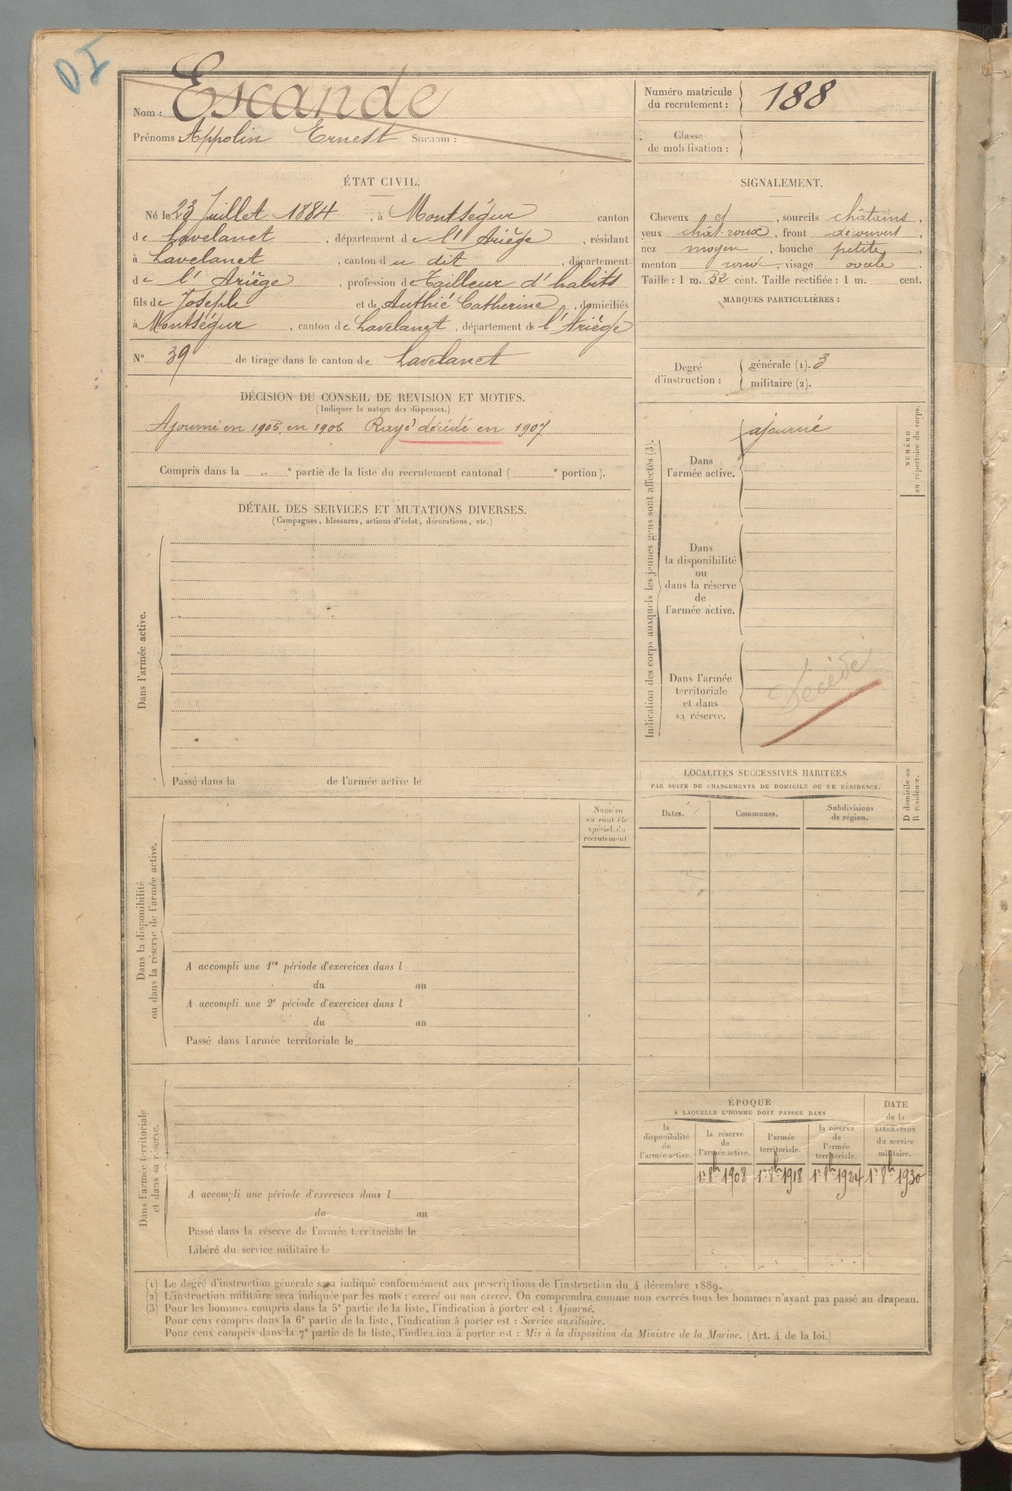 DI
Nom : Escande
Prénoms : Appolin Ernest Surnom :
Numéro matricule
du recrutement : 188
Classe
de mobilisation :
ÉTAT CIVIL.
Né le 23 Juillet 1884, à Montségur canton
de Lavelanet, département de l'Ariège, résidant
à Lavelanet, canton du dit, département
de l'Ariège, profession de Tailleur d'habits
fils de Joseph et de Authié Catherine, domiciliés
à Montségur, canton de Lavelanet, département de l'Ariège
N° 39 de tirage dans le canton de Lavelanet
SIGNALEMENT.
Cheveux d, sourcils châtains,
yeux chât roux, front découvert,
nez moyen, bouche petite,
menton rond, visage ovale.
Taille : 1 m. 52 cent. Taille rectifiée : 1 m. cent.
MARQUES PARTICULIÈRES :
Degré
d'instruction :
générale (1). 3
militaire (2).
DÉCISION DU CONSEIL DE REVISION ET MOTIFS.
(Indiquer la nature des dispenses.)
Ajourné en 1905, en 1906 Rayé décédé en 1907
Compris dans la „ e partie de la liste du recrutement cantonal ( e portion).
DÉTAIL DES SERVICES ET MUTATIONS DIVERSES.
(Campagnes, blessures, actions d'éclat, décorations, etc.)
Dans l'armée active.
Passé dans la de l'armée active le
Indication des corps auxquels les jeunes gens sont affectés (3).
NUMÉRO
au répertoire du corps.
Dans
l'armée active.
ajourné
Dans
la disponibilité
ou
dans la réserve
de
l'armée active.
Dans l'armée
territoriale
et dans
sa réserve.
Décédé
Dans la disponibilité
ou dans la réserve de l'armée active.
Numéro
au contrôle
spécial du
recrutement.
A accompli une 1re période d'exercices dans l
du au
A accompli une 2e période d'exercices dans l
du au
Passé dans l'armée territoriale le
LOCALITÉS SUCCESSIVES HABITÉES
PAR SUITE DE CHANGEMENTS DE DOMICILE OU DE RÉSIDENCE.
Dates. Communes. Subdivisions
de région.
D domicile ou
R résidence.
Dans l'armée territoriale
et dans sa réserve.
A accompli une période d'exercices dans l
du au
Passé dans la réserve de l'armée territoriale le
Libéré du service militaire le
ÉPOQUE
À LAQUELLE L'HOMME DOIT PASSER DANS
la
disponibilité
de
l'armée active.
la réserve
de
l'armée active.
l'armée
territoriale.
la réserve
de
l'armée
territoriale.
DATE
de la
LIBÉRATION
du service
militaire.
1er 8bre 1908 1er 8bre 1918 1er 8bre 1924 1er 8bre 1930
(1) Le degré d'instruction générale sera indiqué conformément aux prescriptions de l'instruction du 4 décembre 1889.
(2) L'instruction militaire sera indiquée par les mots : exercé ou non exercé. On comprendra comme non exercés tous les hommes n'ayant pas passé au drapeau.
(3) Pour les hommes compris dans la 5e partie de la liste, l'indication à porter est : Ajourné.
Pour ceux compris dans la 6e partie de la liste, l'indication à porter est : Service auxiliaire.
Pour ceux compris dans la 7e partie de la liste, l'indication à porter est : Mis à la disposition du Ministre de la Marine. (Art. 4 de la loi.)